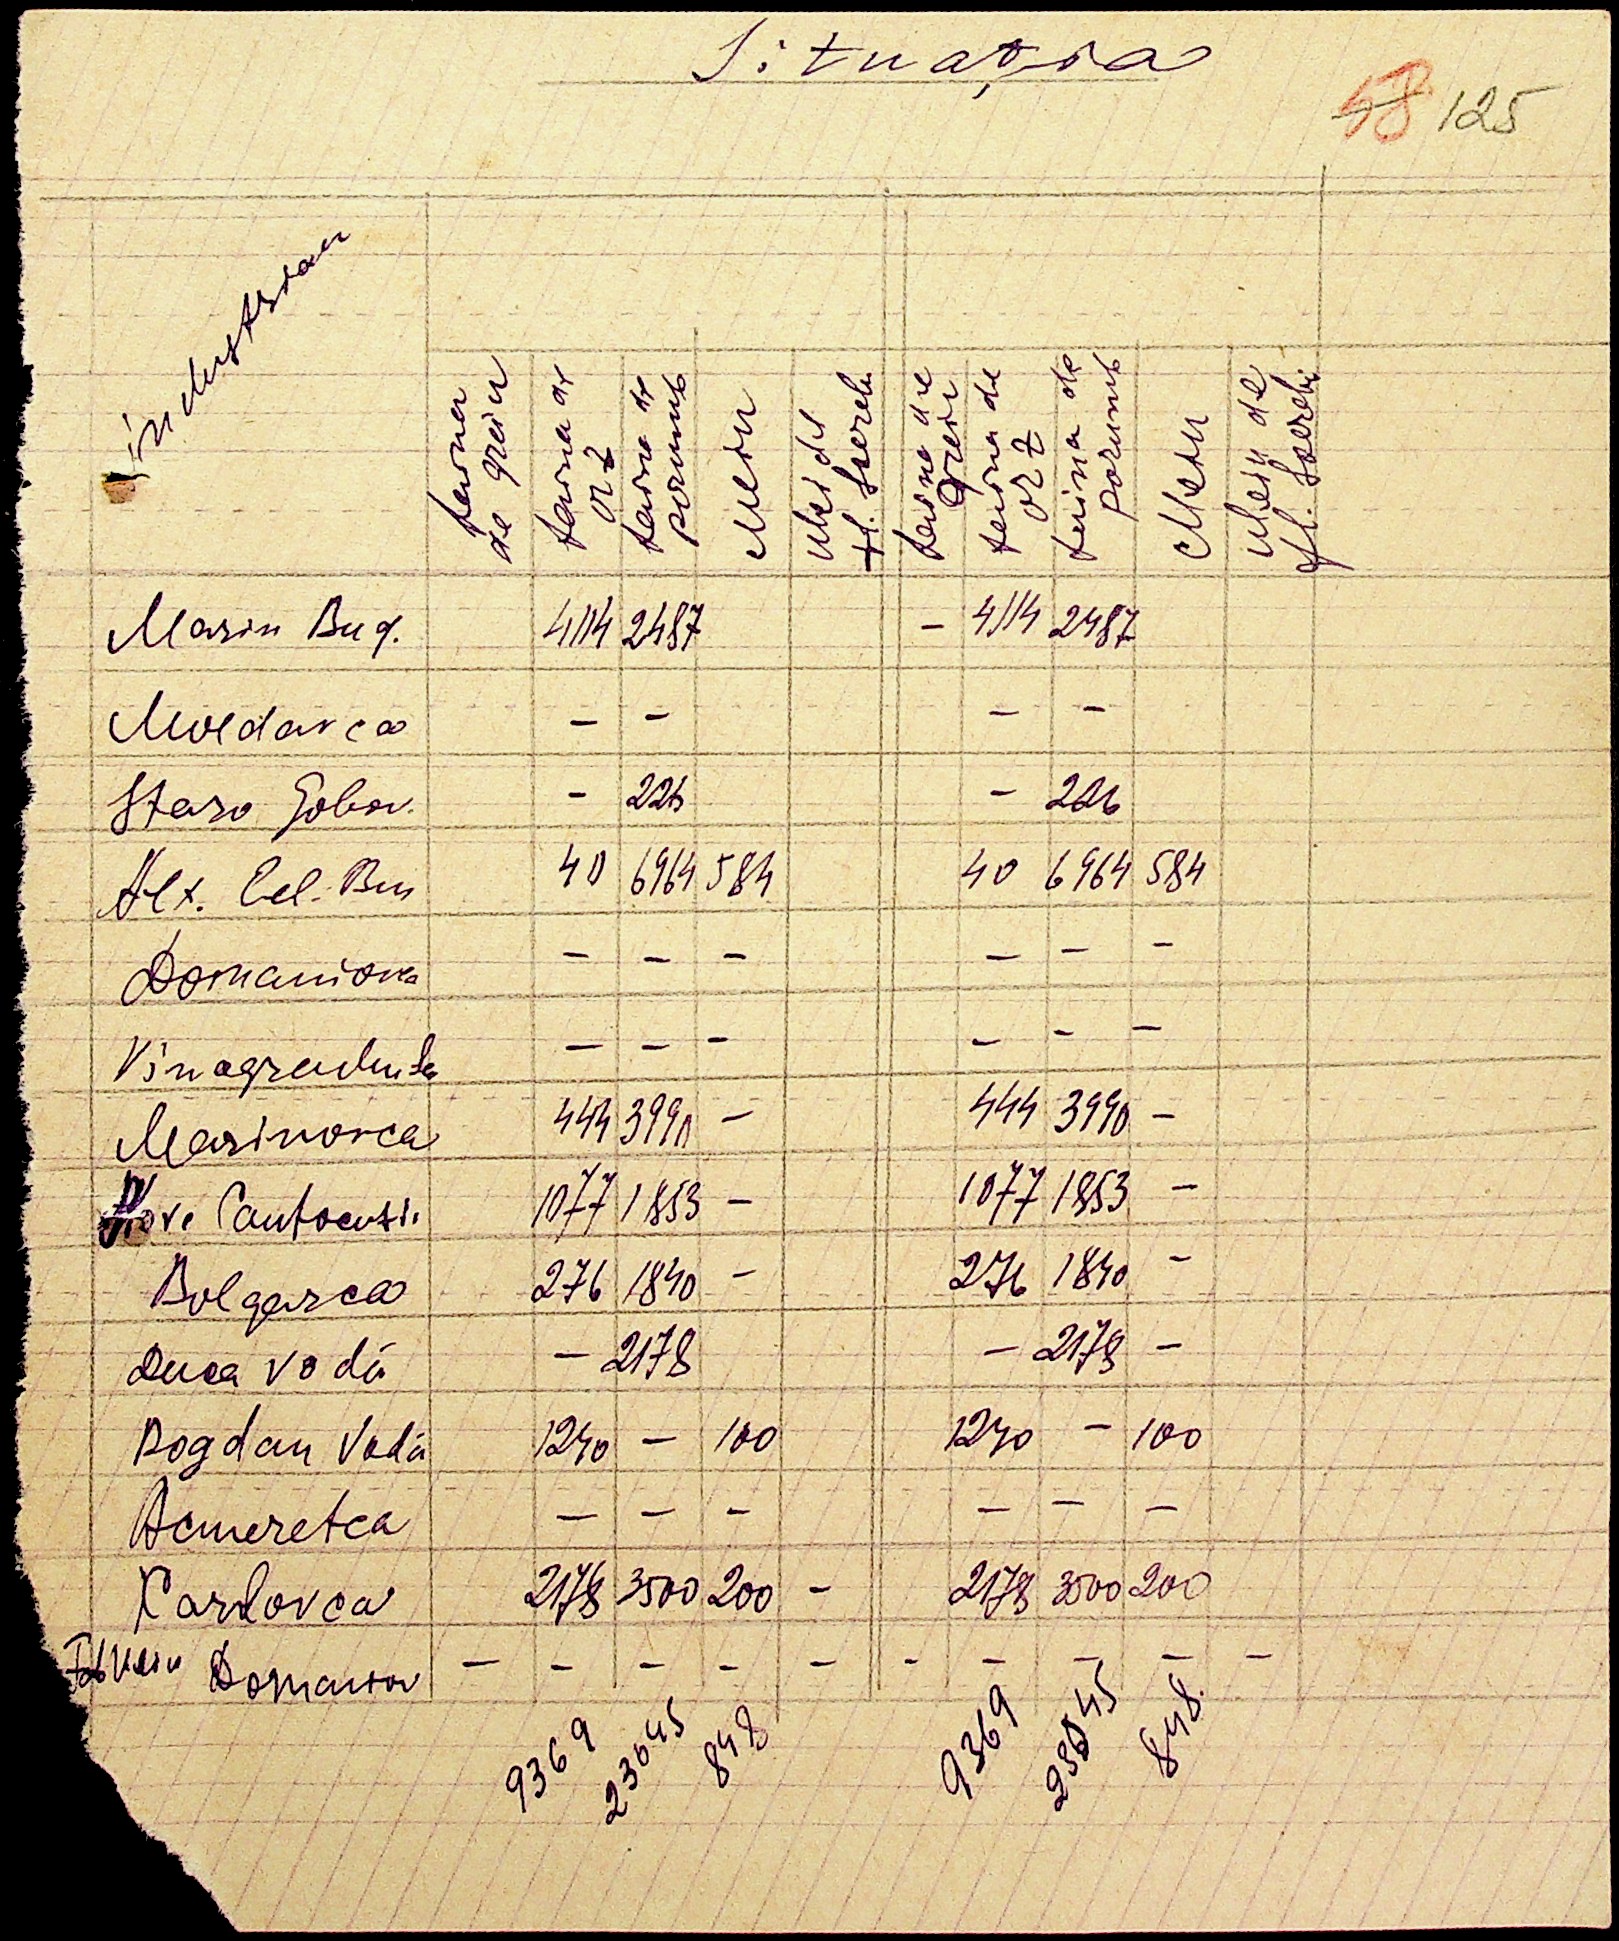 Situația
58 125
industrian
faina de grâu
faina de orz
faina de porumb
Meiu
Ulei de fl. soarelui
faina de grâu
faina de orz
faina de porumb
Meiu
Ulei de fl. soarelui
Marin Bug. 4114 2487 - 4114 2487
Moldavca - - - -
Staro Gobov. - 226 - 226
Alx. Cel. Bun 40 6964 584 40 6964 584
Domaniova - - - - - -
Vinogradnda - - - - - -
Marinovca 444 3990 - 444 3990 -
Nove Cantocuzi. 1077 1853 - 1077 1853 -
Bolgarca 276 1840 - 276 1840 -
Duca Vodă - 2178 - 2178 -
Bogdan Vodă 1240 - 100 1240 - 100
Acmeretca - - - - - -
Karlovca 2178 3500 200 - 2178 3500 200
Fab Ulein Domaniov - - - - - - - - - -
9369 23045 848 9369 23045 848.